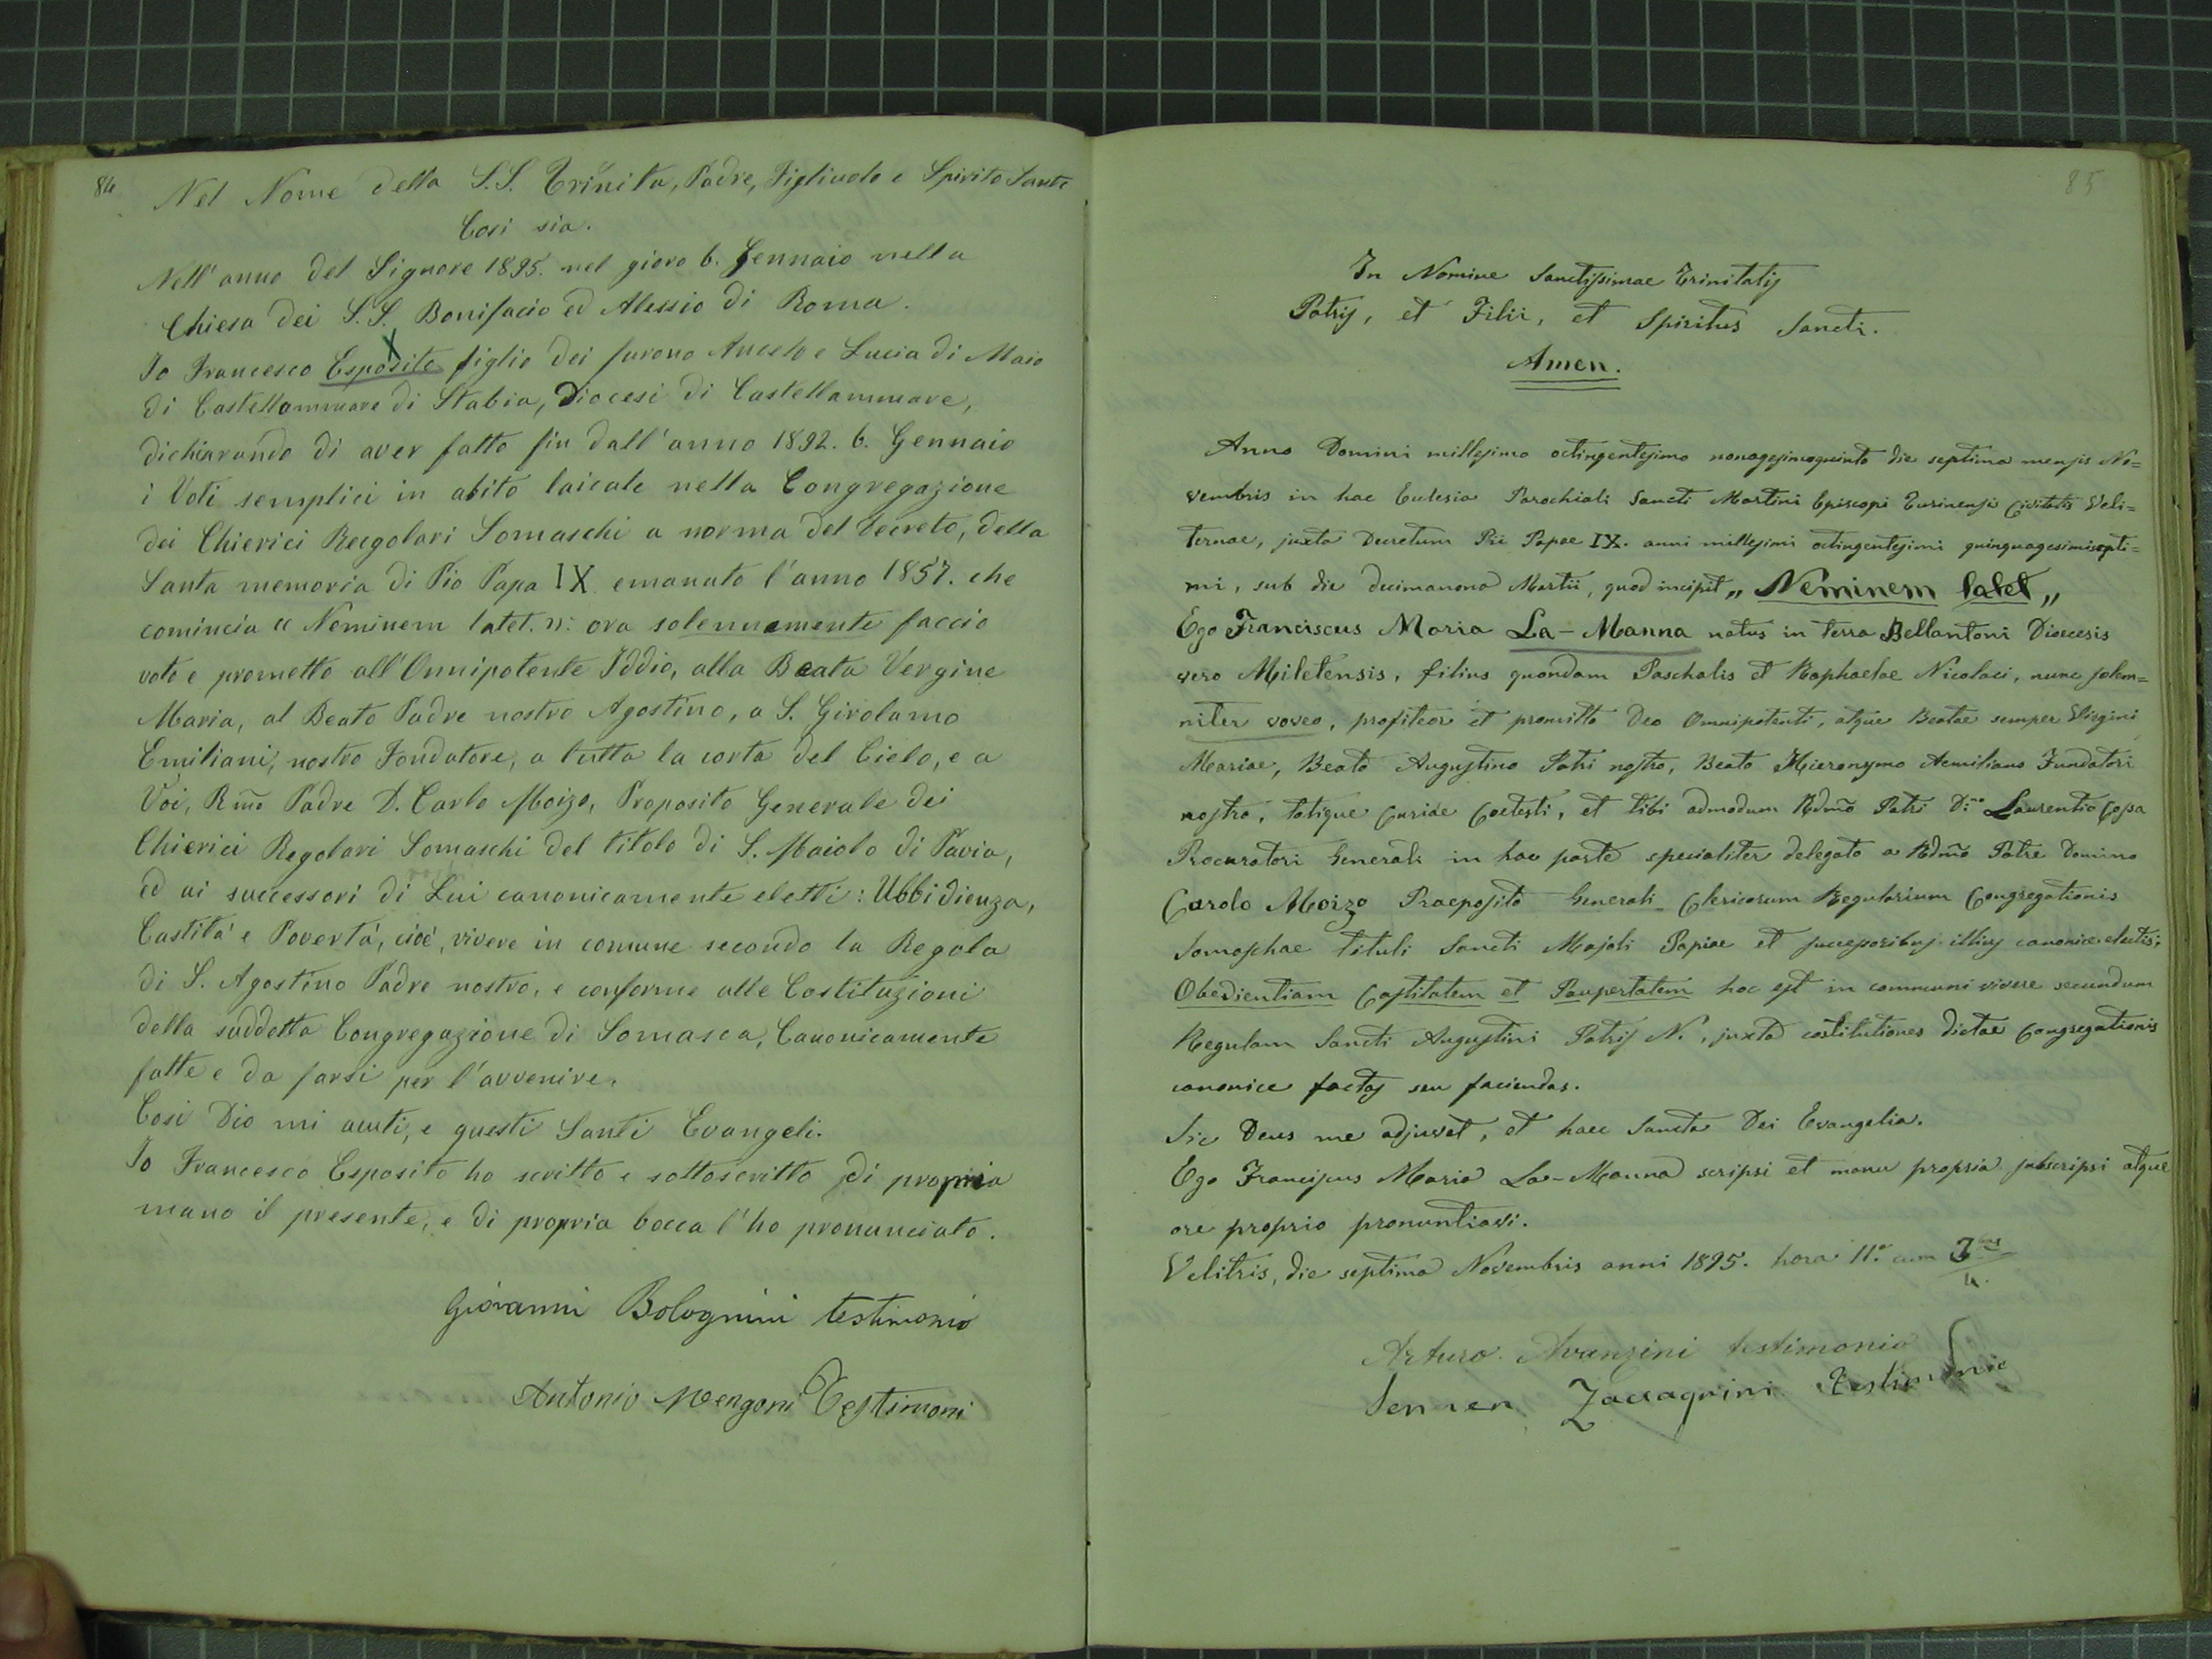 84
Nel Nome della S.S. Trinita, Padre, Figliuolo e Spirito Santo
Cosi sia.
Nell' anno del Signore 1895. nel gioro 6. Gennaio nella
Chiesa dei S.S. Bonifacio ed Alessio di Roma.
Io Francesco Esposito figlio dei furono Aniello e Lucia di Maio
di Castellammare di Stabia, Diocesi di Castellammare,
dichiarando di aver fatto fin dall'anno 1892. 6. Gennaio
i Voti semplici in abito laicale nella Congregazione
dei Chierici Reegolari Somaschi a norma del decreto, della
Santa memoria di Pio Papa IX emanato l'anno 1857. che
comincia « Neminem latet. »: ora solennemente faccio
voto e prometto all'Onnipotente Iddio, alla Beata Vergine
Maria, al Beato Padre nostro Agostino, a S. Girolamo
Emiliani, nostro Fondatore, a tutta la corta del Cielo, e a
Voi, Rmo Padre D. Carlo Moizo, Proposito Generale dei
Chierici Regolari Somaschi del titolo di S. Maiolo di Pavia,
ed ai successori di Lui canonicamente eletti: Ubbidienza,
Castità e Povertà, cioè, vivere in comune secondo la Regola
di S. Agostino Padre nostro, e conforme alle Costituzioni
della suddetta Congregazione di Somasca, Canonicamente
fatte e da farsi per l'avvenire.
Cosi Dio mi aiuti, e questi Santi Evangeli.
Io Francesco Esposito ho scritto e sottoscritto di propria
mano il presente, e di propria bocca l'ho pronunciato.
Giovanni Bolognini testimonio
Antonio Mengoni Testimoni
85
In Nomine Sanctissimae Trinitatis
Patris, et Filii, et Spiritus Sancti.
Amen.
Anno Domini millesimo octingentesimo nonagesimoquinto die septima mensis No=
vembris in hac Ecclesia Parochiali Sancti Martini Episcopi Turinensis Civitatis Veli=
ternae, juxta Decretum Pii Papae IX. anni millesimi octingentesimi quinquagesimisepti=
mi, sub die decimanona Martii, quod incipit „ Neminem latet „
Ego Franciscus Maria La-Manna natus in terra Bellantoni Dioecesis
vero Miletensis, filius quondam Paschalis et Raphaelae Nicolaci, nunc solem=
niter voveo, profiteor et promitto Deo Omnipotenti, atque Beatae semper Virgini
Mariae, Beato Augustino Patri nostro, Beato Hieronymo Aemiliano Fundatori
nostro, totique Curiae Coelesti, et tibi admodum Rdmo Patri D.no Laurentio Cossa
Procuratori Generali in hac parte specialiter delegato a Rdmo Patre Domino
Carolo Moizo Praeposito Generali Clericorum Regularium Congregationis
Somaschae tituli Sancti Majoli Papiae et successoribus illius canonice electis;
Obedientiam Castitatem et Paupertatem hoc est in communi vivere secundum
Regulam Sancti Augustini Patris N., juxta costitutiones dictae Congregationis
canonice factas seu faciendas.
Sic Deus me adjuvet, et haec Sancta Dei Evangelia.
Ego Franciscus Maria La-Manna scripsi et manu propria subscripsi atque
ore proprio pronuntiavi.
Velitris, die septima Novembris anni 1895. hora 11.a cum 3
4.
Arturo Avanzini testimonio
Zaccagnini Testimonio